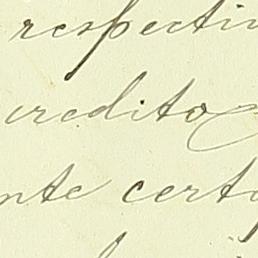 respectiv
credito
nte certo